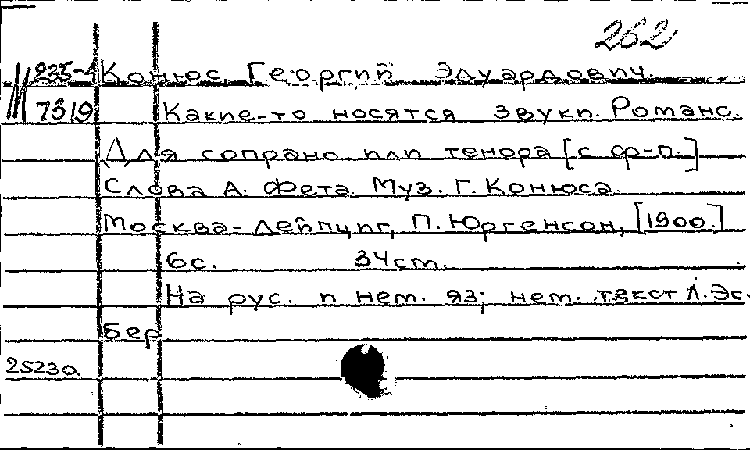 262
М 235-1 Конюс, Георгий Эдуардович.
7319 Какие-то носятся звуки. Романс.
Для сопрано или тенора [с ф-п.]
Слова А. Фета. Муз. Г. Конюса.
Москва-Лейпциг, П. Юргенсон, [1900.]
6с. 34ст.
На рус. и нем. яз; нем. текст Л. Эс.
бер
25230.